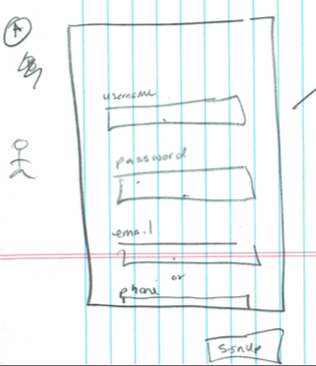 A
username
password
email
or
phone
SignUp